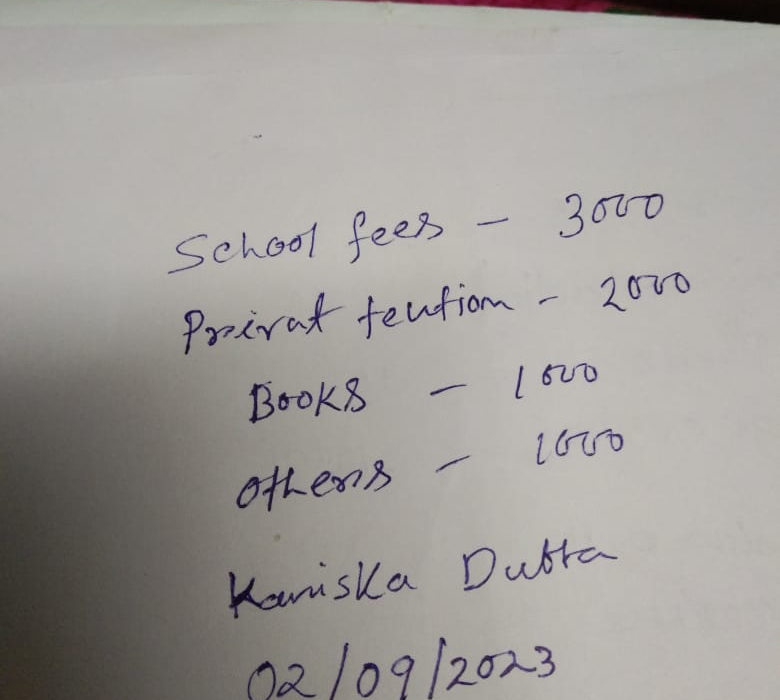 School fees - 3000
Praivat teution - 2000
Books - 1000
Others - 1000
Kaniska Dutta
02/09/2023